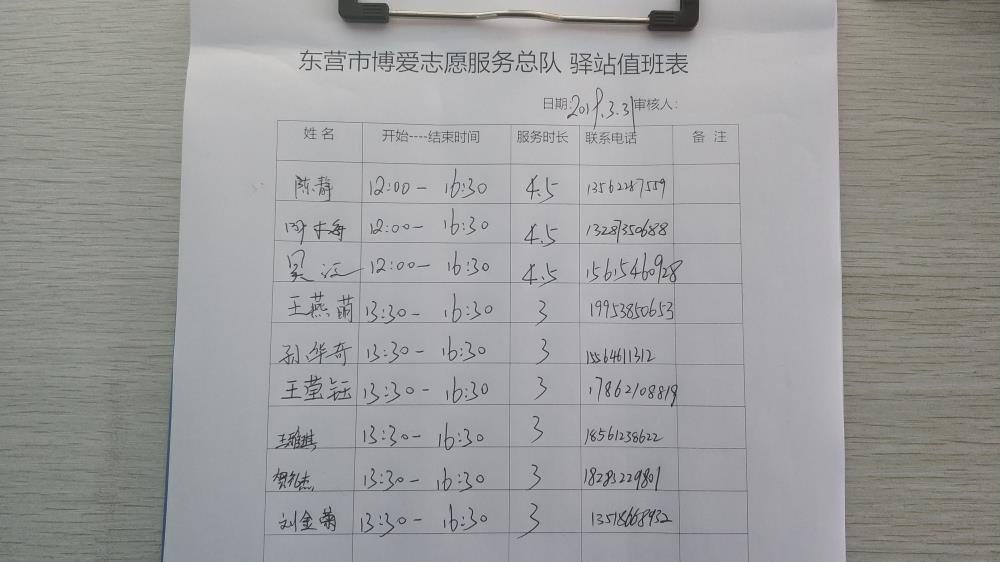 东营市博爱志愿服务总队 驿站值班表
日期:2019.3.31 审核人:
姓名 开始----结束时间 服务时长 联系电话 备 注
陈静 12:00- 16:30 4.5 13562287559
12:00- 16:30 4.5 13287350688
吴 12:00- 16:30 4.5 15615460928
王燕萌 13:30- 16:30 3 19953850653
孙华奇 13:30- 16:30 3 15564611312
王莹钰 13:30- 16:30 3 17862108819
王雅琪 13:30- 16:30 3 18561238622
13:30- 16:30 3 18283229801
刘金菊 13:30- 16:30 3 13518668932